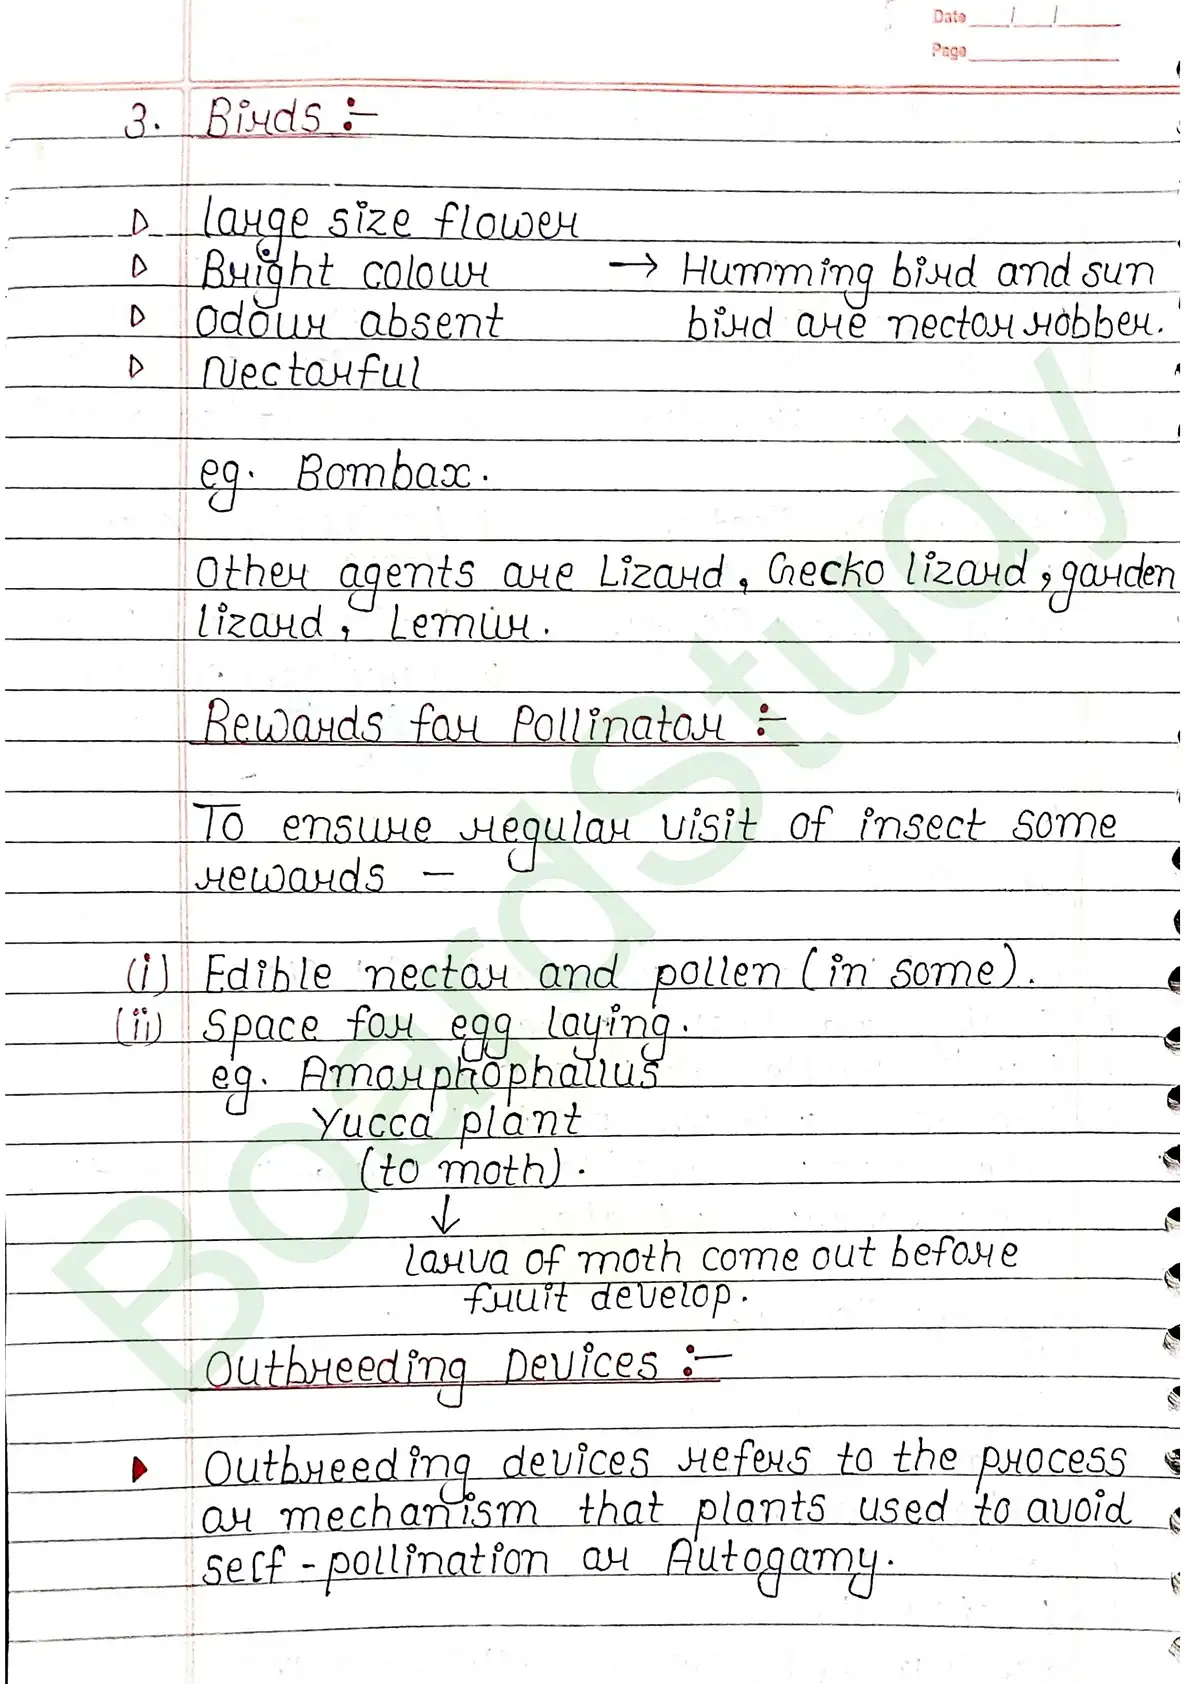 Date __/__/____
Page ________
3. Birds :-
▷ large size flower
▷ Bright colour → Humming bird and sun
▷ Odour absent bird are nector robber.
▷ Nectarful
eg. Bombax.
Other agents are Lizard, Gecko lizard, garden
lizard, Lemur.
Rewards for Pollinator :-
To ensure regular visit of insect some
rewards -
(i) Edible nector and pollen (in some).
(ii) Space for egg laying.
eg. Amorphophallus
Yucca plant
(to moth).
↓
larva of moth come out before
fruit develop.
Outbreeding Devices :-
▶ Outbreeding devices refers to the process
or mechanism that plants used to avoid
self-pollination or Autogamy.
BoardStudy